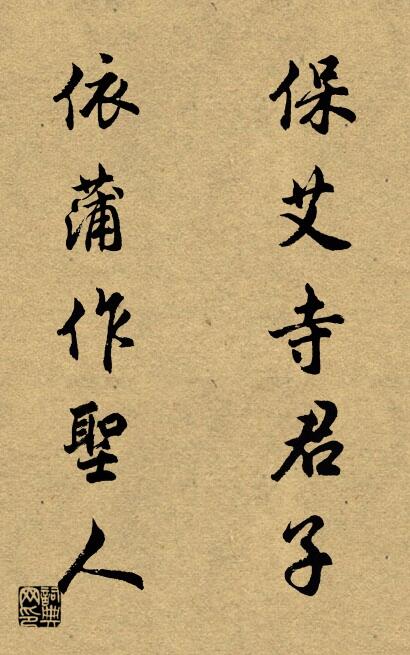 保艾寺君子
依蒲作聖人
詞典網印